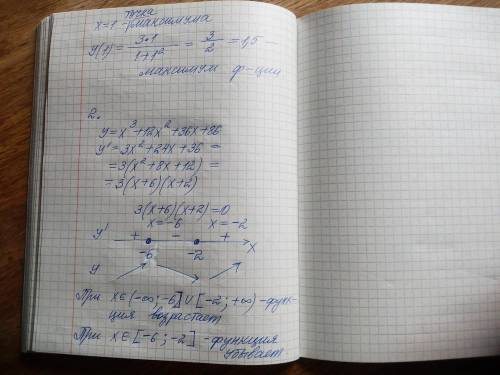 точка
x=1 - максимума
y(1) = 3·1 / 1+1² = 3/2 = 1,5 —
максимум ф-ции
2.
y = x³+12x²+36x+86
y' = 3x²+24x+36 =
= 3(x²+8x+12) =
= 3(x+6)(x+2)
3(x+6)(x+2)=0
x=-6 x=-2
y' + - + x
-6 -2
y
При x∈(-∞; -6]∪[-2; +∞) - функ-
ция возрастает
При x∈[-6; -2] - функция
убывает